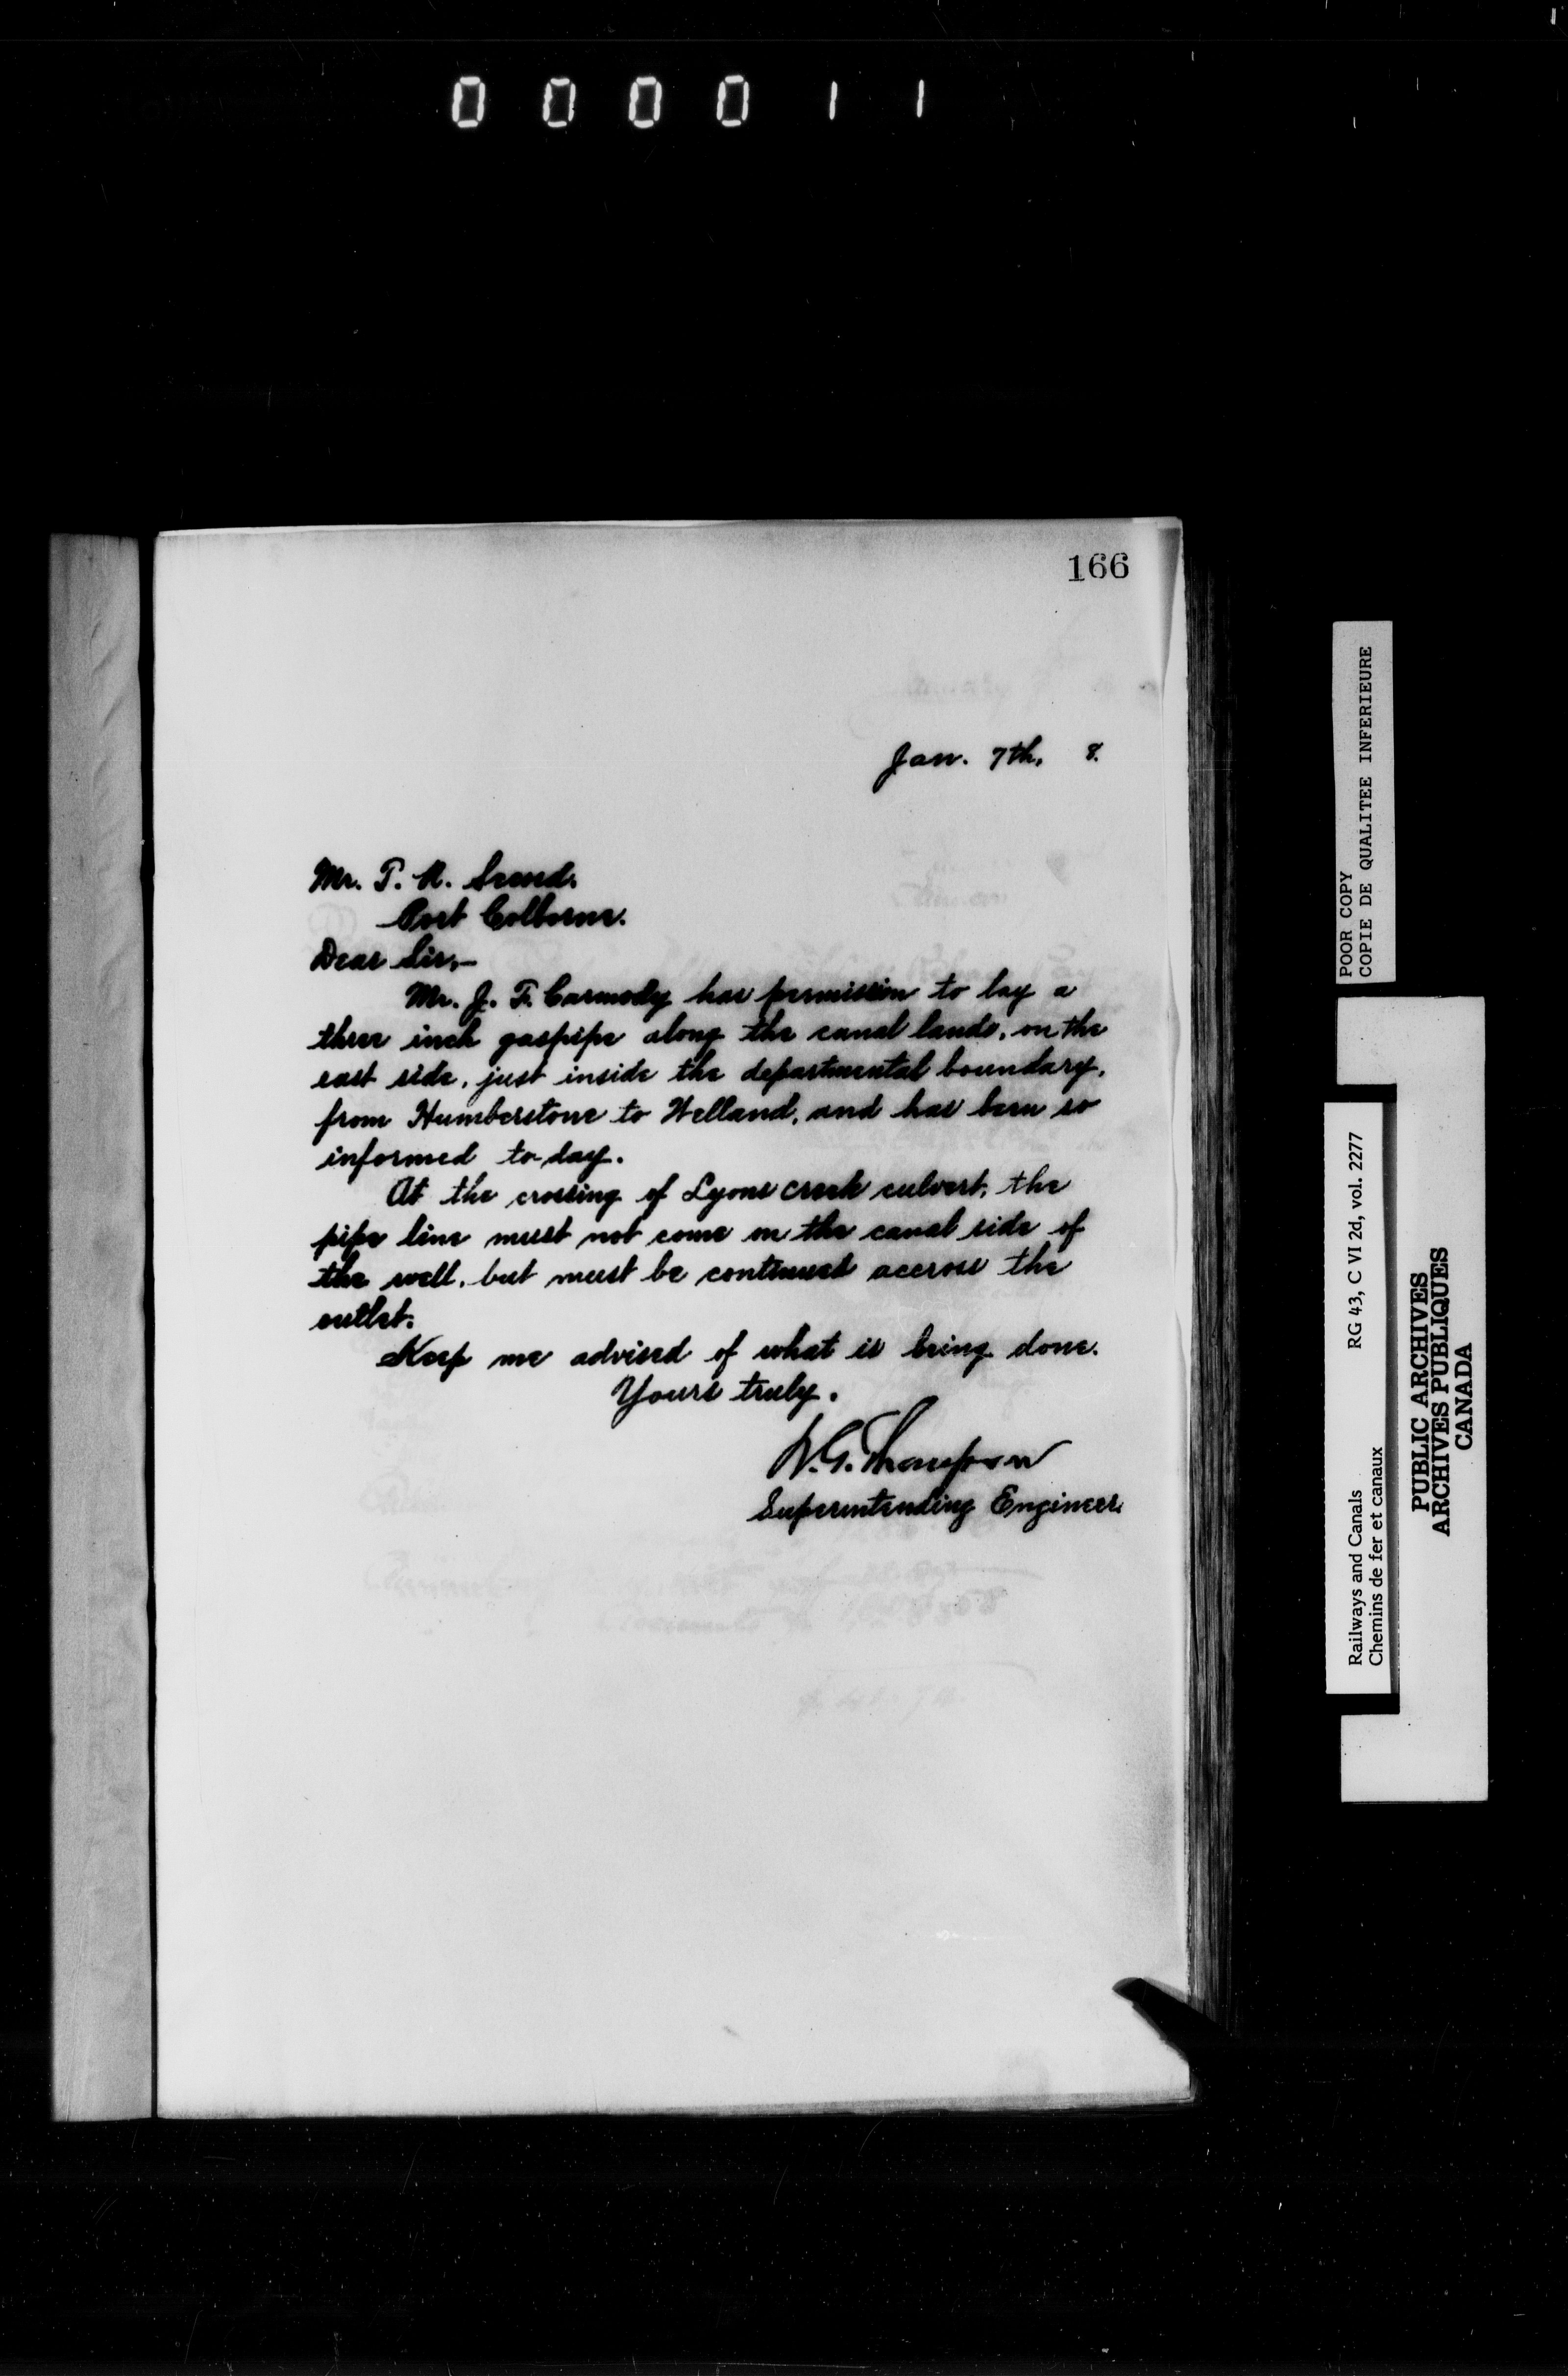 000011
166
Jan. 7th, 8.
Mr. T. A.
Port Colborne.
Dear Sir,—
Mr. J. F. Carmody has permission to lay a
three inch gaspipe along the canal lands, on the
east side, just inside the departmental boundary,
from Humberstone to Welland, and has been so
informed to-day.
At the crossing of Lyons creek culvert, the
pipe line must not come on the canal side of
the well, but must be continued accross the
outlet.
Keep me advised of what is being done.
Yours truly,
W. G. Thompson
Superintending Engineer.
POOR COPY
COPIE DE QUALITEE INFERIEURE
Railways and Canals RG 43, C VI 2d, vol. 2277
Chemins de fer et canaux
PUBLIC ARCHIVES
ARCHIVES PUBLIQUES
CANADA